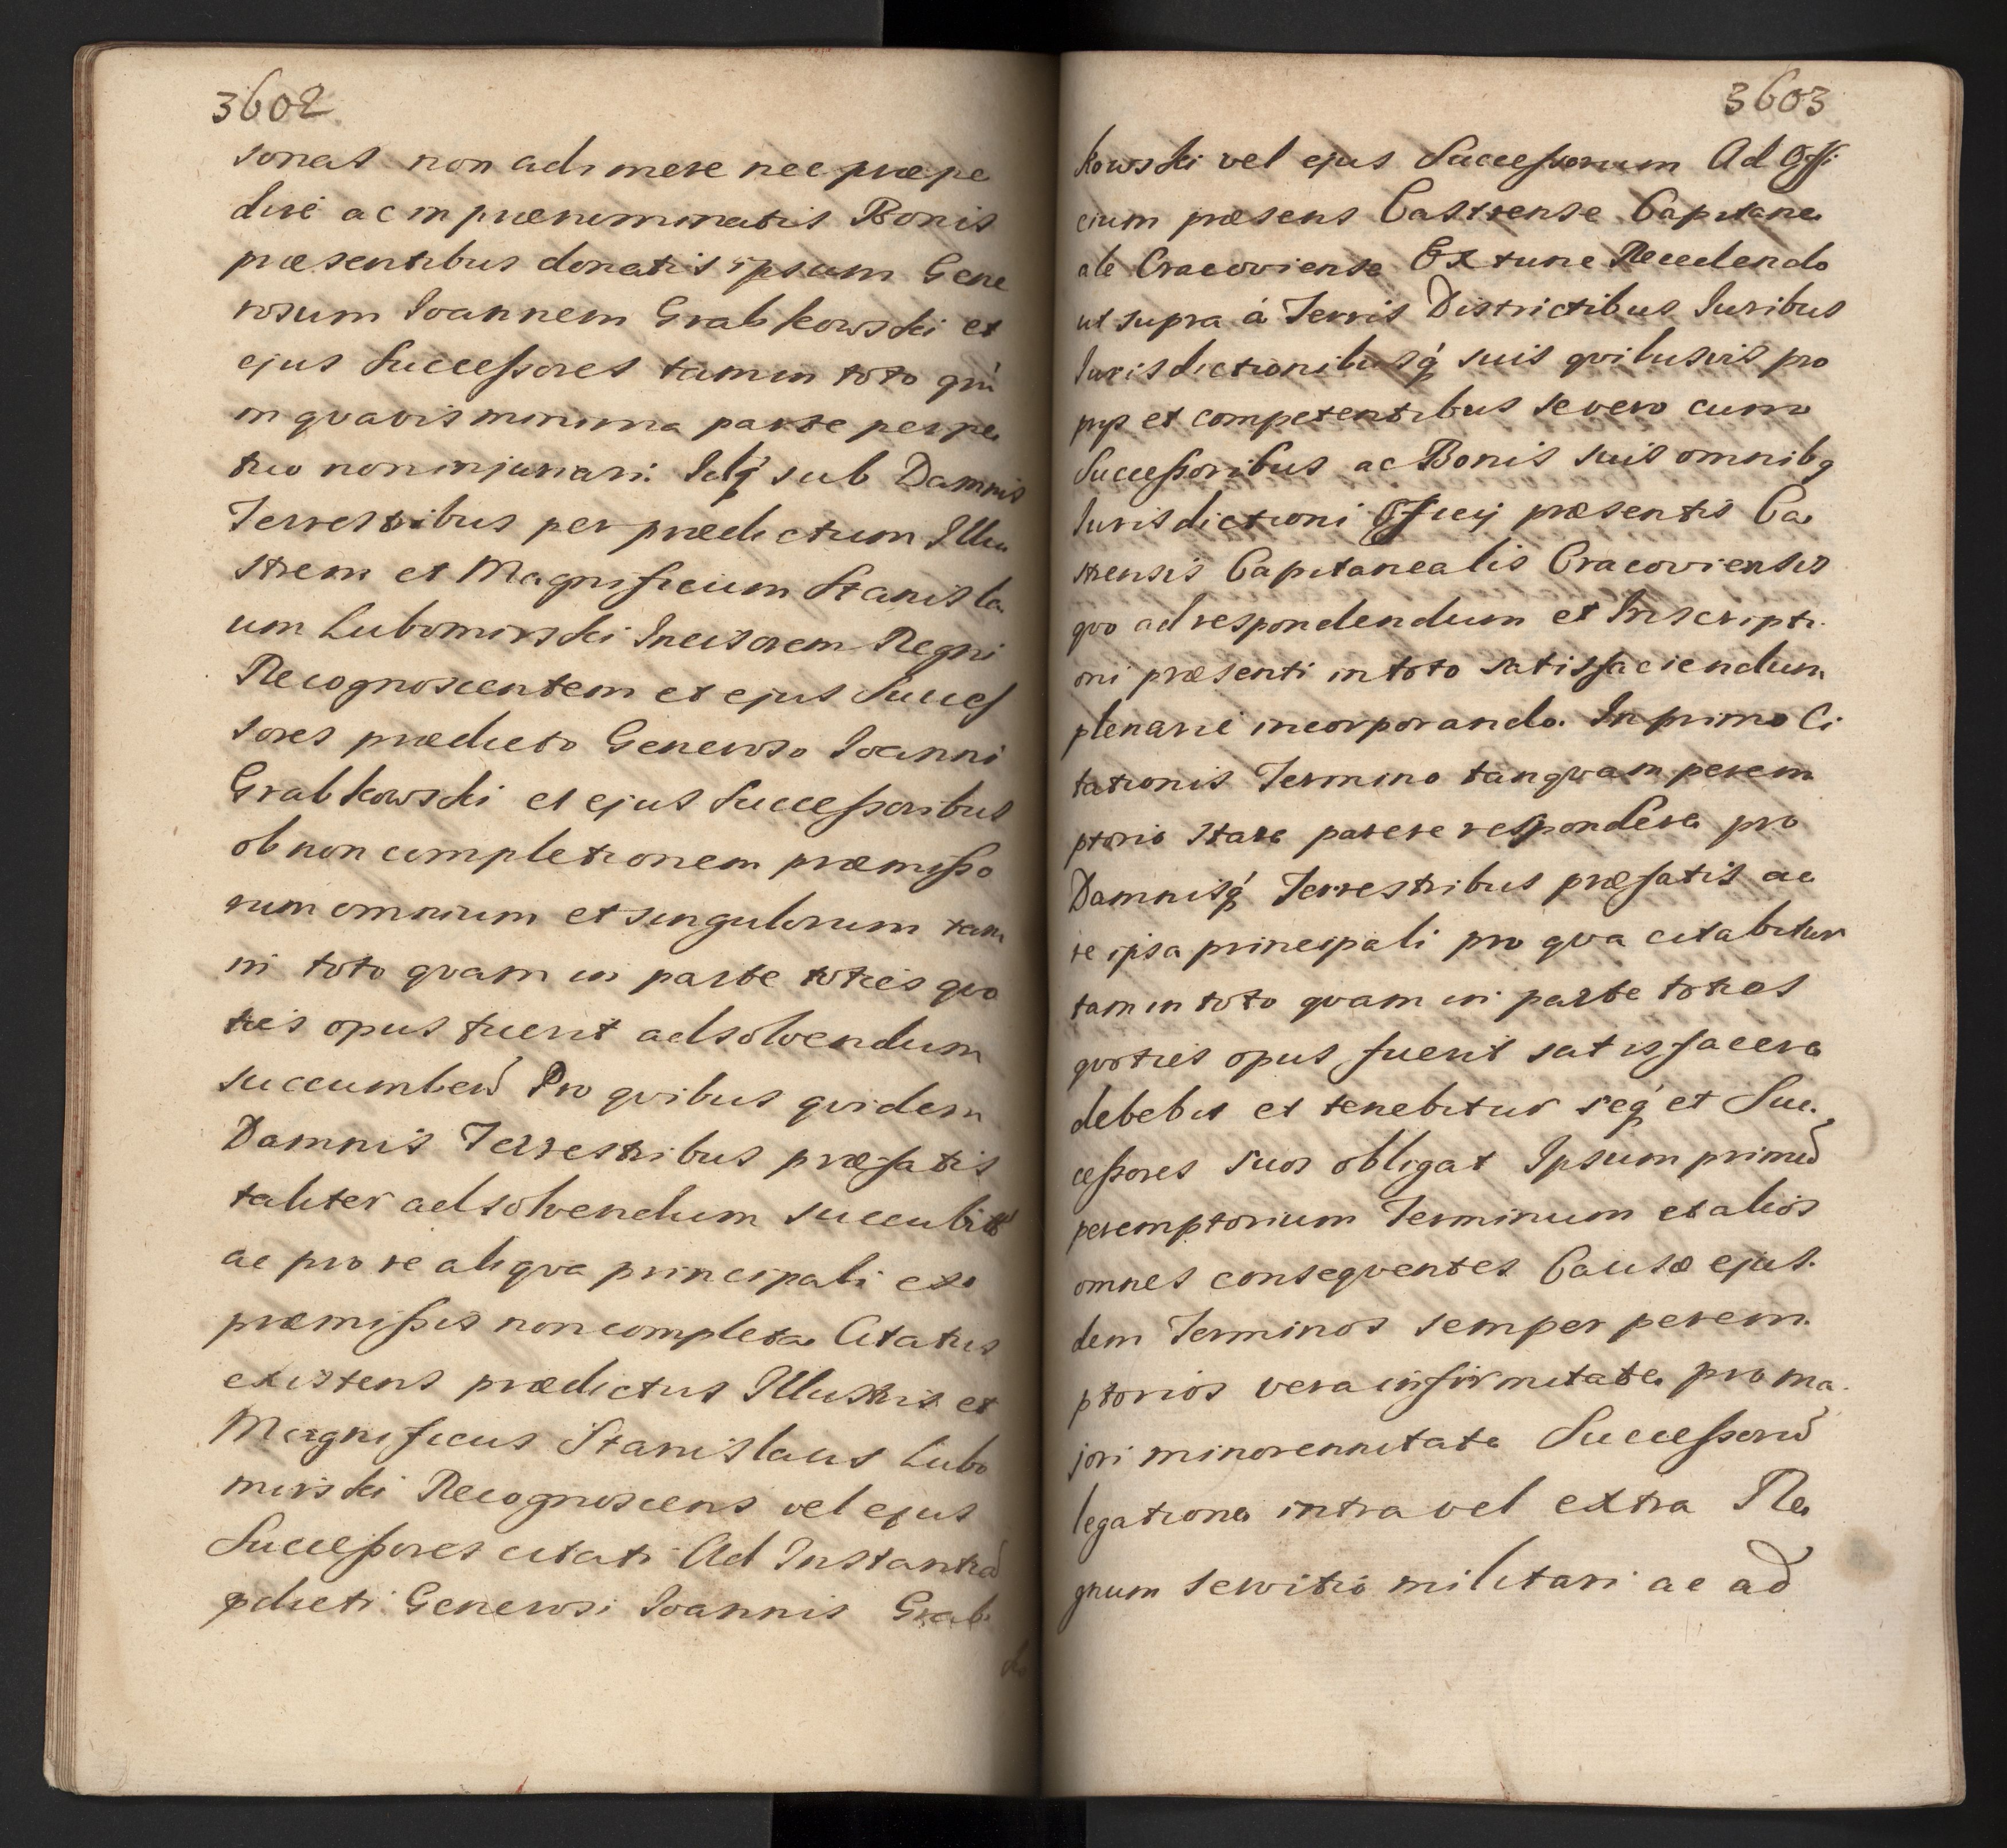 3602
sonas non adimere nec præpe
dire ac in prænominatis Bonis
præsentibus donatis ipsum Gene
rosum Ioannem Grabkowski et
ejus Successores tam in toto qm̀
in qvavis minima parte perpe
tuo non injuriari. Idq́ sub Damnis
Terrestribus per prædictum Illu
strem et Magnificum Stanisla
um Lubomirski Incisorem Regni
Recognoscentem et ejus Succes
sores prædicto Generoso Ioanni
Grabkowski et ejus Successoribus
ob non completionem præmisso
rum omnium et singulorum tam
in toto qvam in parte toties qvo
ties opus fuerit ad solvendum
succumben̄ Pro qvibus qvidem
Damnis Terrestribus præfatis
taliter ad solvendum succubit̄
ac pro re aliqva principali exo
præmissis non completa Citatus
existens prædictus Illustris et
Magnificus Stanislaus Lubo
mirski Recognoscens vel ejus
Successores citati Ad Instantiā
pdicti Generosi Ioannis Grab
ko
3603
kowski vel ejus Successorum Ad Offi
cium præsens Castrense Capitane
ale Cracoviense Ex tunc Recedendo
ut supra á Terris Districtibus Iuribus
Iurisdictionibusq́ suis qvibusvis pro
prys et competentibus se vero cum
Successoribus ac Bonis suis omnibq
Iurisdictioni Officy præsentis Ca
strensis Capitanealis Cracoviensis
qvo ad respondendum et Inscripti
oni præsenti in toto satisfaciendum
plenarie incorporando. In primo Ci
tationis Termino tanqvam perem
ptorio stare parere respondere pro
Damnisq́ Terrestribus præfatis ac
re ipsa principali pro qva citabitur
tam in toto qvam in parte toties
qvoties opus fuerit satisfacere
debebit et tenebitur seq́ et Suc
cessores suos obligat Ipsum primū
peremptorium Terminum et alios
omnes conseqventes Causæ ejus
dem Terminos semper perem
ptorios vera infirmitate pro ma
jori minorennitate Successorū
legatione intra vel extra Re
gnum servitio militari ac ad